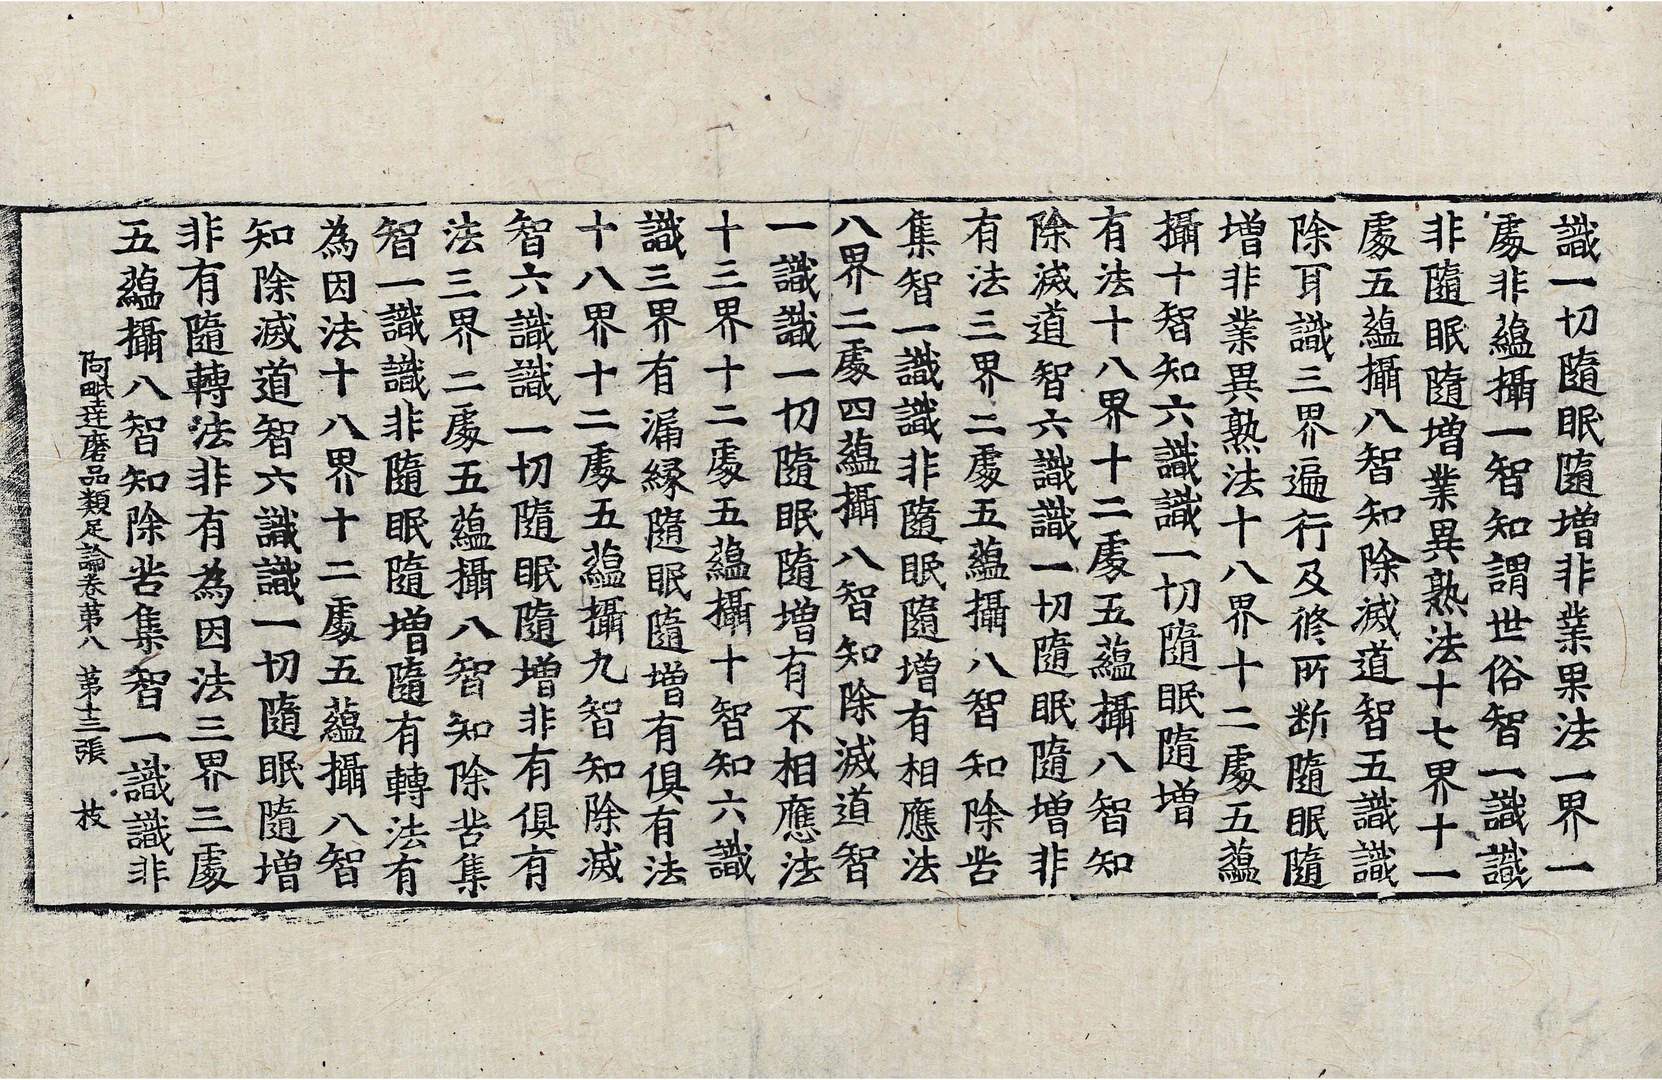 識一切隨眠隨增非業果法一界一
處非蘊攝一智知謂世俗智一識識
非隨眠隨增業異熟法十七界十一
處五蘊攝八智知除滅道智五識識
除耳識三界遍行及修所斷隨眠隨
增非業異熟法十八界十二處五蘊
攝十智知六識識一切隨眠隨增
有法十八界十二處五蘊攝八智知
除滅道智六識識一切隨眠隨增非
有法三界二處五蘊攝八智知除苦
集智一識識非隨眠隨增有相應法
八界二處四蘊攝八智知除滅道智
一識識一切隨眠隨增有不相應法
十三界十二處五蘊攝十智知六識
識三界有漏緣隨眠隨增有俱有法
十八界十二處五蘊攝九智知除滅
智六識識一切隨眠隨增非有俱有
法三界二處五蘊攝八智知除苦集
智一識識非隨眠隨增隨有轉法有
為因法十八界十二處五蘊攝八智
知除滅道智六識識一切隨眠隨增
非有隨轉法非有為因法三界三處
五蘊攝八智知除苦集智一識識非
阿毗達磨品類足論卷第八 第十三張 枝